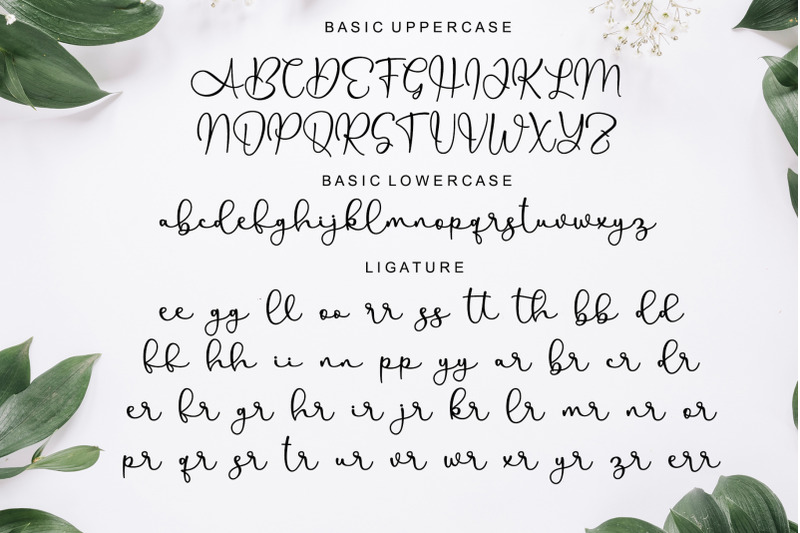 BASIC UPPERCASE
ABCDEFGHIJKLM
NOPQRSTUVWXYZ
BASIC LOWERCASE
abcdefghijklmnopqrstuvwxyz
LIGATURE
ee gg ll oo rr ss tt th bb dd
ff hh ii nn pp yy ar br cr dr
er fr gr hr ir jr kr lr mr nr or
pr qr sr tr ur vr wr xr yr zr err